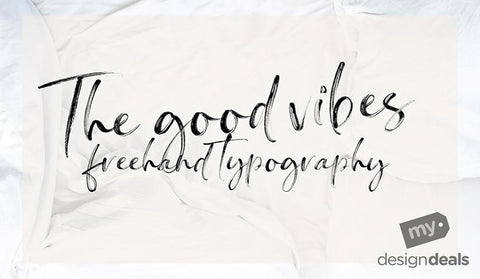 The good vibes
freehand typography
my
designdeals